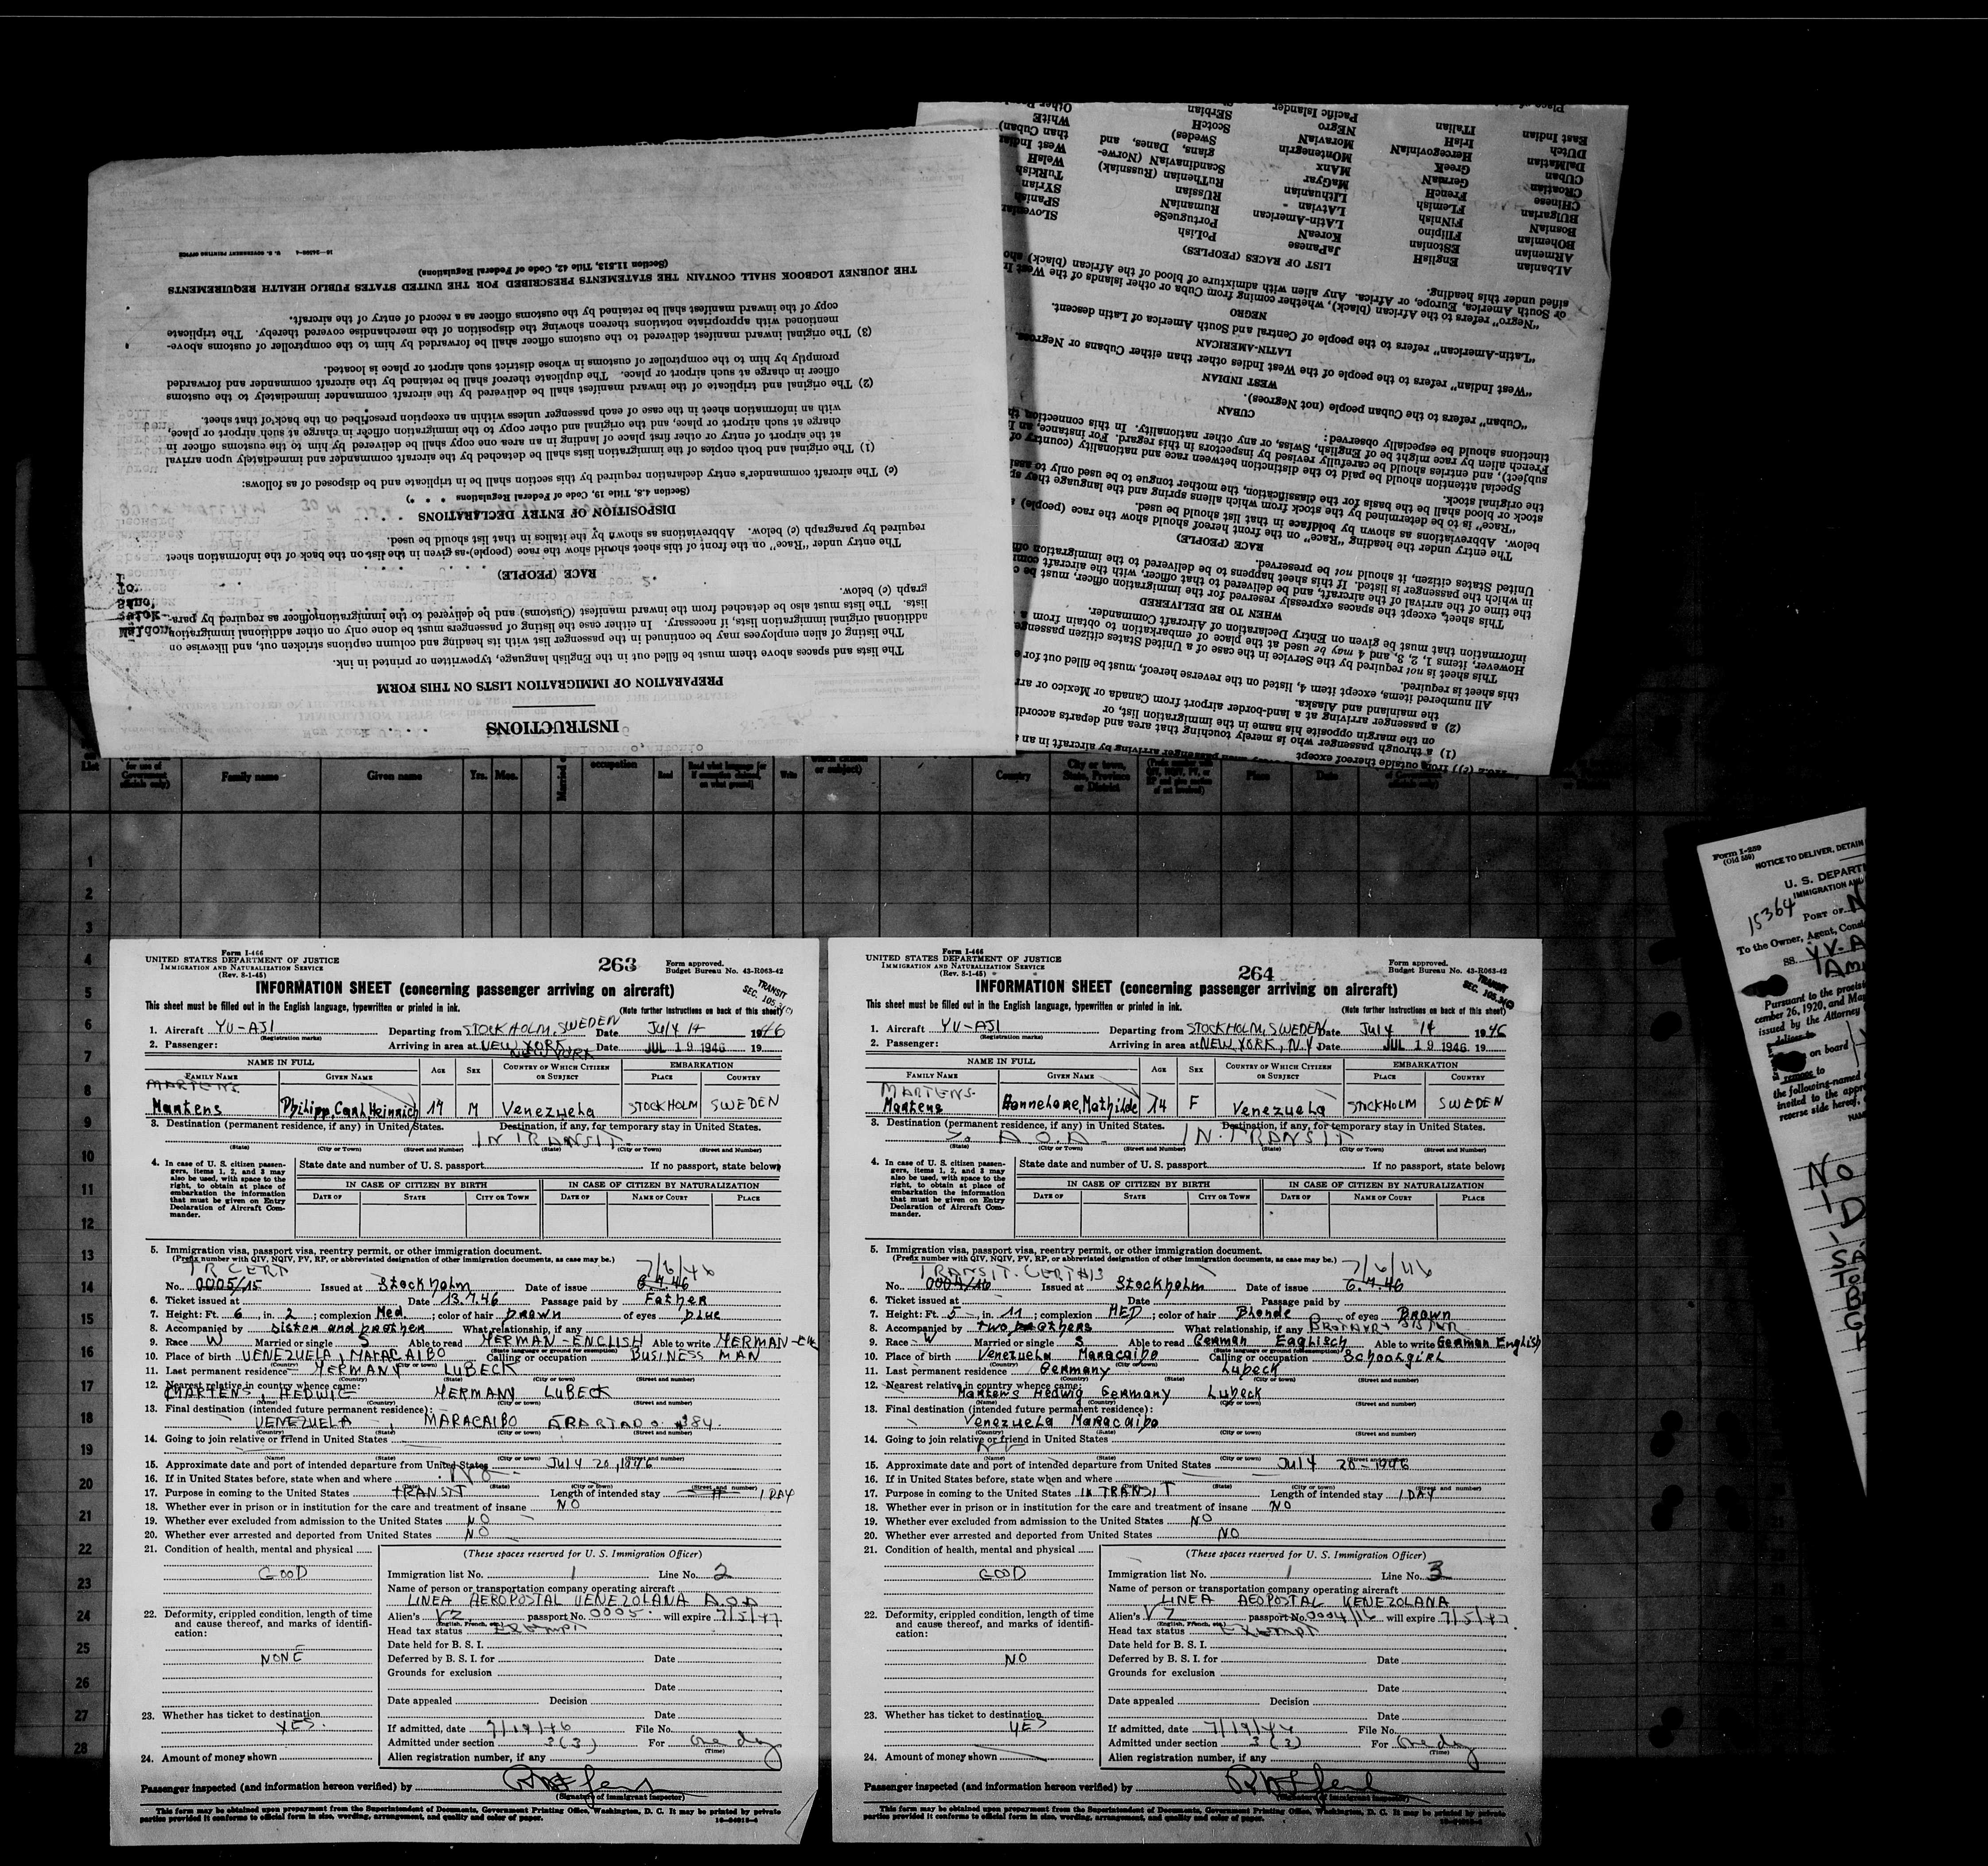 INSTRUCTIONS
PREPARATION OF IMMIGRATION LISTS ON THIS FORM
The lists and spaces above them must be filled out in the English language, typewritten or printed in ink.
The listing of alien employees may be continued in the passenger list with its heading and column captions stricken out, and likewise on
additional original immigration lists, if necessary. In either case the listing of passengers must be done only on other additional immigration
lists. The lists must also be detached from the inward manifest (Customs) and be delivered to the immigration officer as required by para-
graph (c) below.
RACE (PEOPLE)
The entry under "Race" on the front of this sheet should show the race (people) as given in the list on the back of the information sheet
required by paragraph (c) below. Abbreviations as shown by the italics in that list should be used.
DISPOSITION OF ENTRY DECLARATIONS
(Section 4.8, Title 19, Code of Federal Regulations * * *)
(c) The aircraft commander's entry declaration required by this section shall be in triplicate and be disposed of as follows:
(1) The original and both copies of the immigration lists shall be detached by the aircraft commander and immediately upon arrival
at the airport of entry or other first place of landing in an area one copy shall be delivered by him to the customs officer in
charge at such airport or place, and the original and other copy to the immigration officer in charge at such airport or place,
with an information sheet in the case of each passenger unless within an exception prescribed on the back of that sheet.
(2) The original and triplicate of the inward manifest shall be delivered by the aircraft commander immediately to the customs
officer in charge at such airport or place. The duplicate thereof shall be retained by the aircraft commander and forwarded
promptly by him to the comptroller of customs in whose district such airport or place is located.
(3) The original inward manifest delivered to the customs officer shall be forwarded by him to the comptroller of customs above-
mentioned with appropriate notations thereon showing the disposition of the merchandise covered thereby. The triplicate
copy of the inward manifest shall be retained by the customs officer as a record of entry of the aircraft.
THE JOURNEY LOGBOOK SHALL CONTAIN THE STATEMENTS PRESCRIBED FOR THE UNITED STATES PUBLIC HEALTH REQUIREMENTS
(Section 11.513, Title 42, Code of Federal Regulations)
U. S. GOVERNMENT PRINTING OFFICE
(1) a through passenger who is merely touching that area and departs accordi
on the margin opposite his name in the immigration list, or
(2) a passenger arriving at a land-border airport from Canada or Mexico or arr
the mainland and Alaska.
All numbered items, except item 4, listed on the reverse hereof, must be filled out for e
this sheet is required.
This sheet is not required by the Service in the case of a United States citizen passenge
However, items 1, 2, 3, and 4 may be used at the place of embarkation to obtain from a
information that must be given on Entry Declaration of Aircraft Commander.
WHEN TO BE DELIVERED
This sheet, except the spaces expressly reserved for the immigration officer, must be c
the time of the arrival of the aircraft, and be delivered to that officer, with the aircraft com
in which the passenger is listed. If this sheet happens to be delivered to the immigration off
United States citizen, it should not be preserved.
RACE (PEOPLE)
The entry under the heading "Race" on the front hereof should show the race (people)
below. Abbreviations as shown by boldface in that list should be used.
"Race" is to be determined by the stock from which aliens spring and the language they sp
stock or blood shall be the basis for the classification, the mother tongue to be used only to assi
the original stock.
Special attention should be paid to the distinction between race and nationality (country of
subject), and entries should be carefully revised by inspectors in this regard. For instance, an
French alien by race might be of English, Swiss, or any other nationality. In this connection th
tinctions should be especially observed:
CUBAN
"Cuban" refers to the Cuban people (not Negroes).
WEST INDIAN
"West Indian" refers to the people of the West Indies other than either Cubans or Negroes.
LATIN-AMERICAN
"Latin-American" refers to the people of Central and South America of Latin descent.
NEGRO
"Negro" refers to the African (black), whether coming from Cuba or other islands of the West I
or South America, Europe, or Africa. Any alien with admixture of blood of the African (black) sho
sified under this heading.
LIST OF RACES (PEOPLES)
ALbanian EnglisH JaPanese PoLish SLOvenian
ARmenian EStonian KoreaN PortuguesE SPanish
BOhemian FIlipino LAtin-American RumaniaN SYrian
BosniaN FiNnish LAtvian RUssian TurKish
BUlgarian FLemish LIthuanian RuThenian (Russniak) WelsH
CHinese FrencH MaGyar Scandinavian (Norwe- West Indian
CRoatian GermaN MAnx gians, Danes, and than Cuban)
CUban GreeK MOntenegrin Swedes) WhitE
DalMatian HercegoviniaN MoraviaN ScotcH Other
DUtch IrisH NEgro SErbian
East Indian ITalian Pacific Islander
List
Family name Given name Yrs. Mos. occupation Read Write or subject) Country City or town, State, Province or District Place Date
1
2
3
4
5
6
7
8
9
10
11
12
13
14
15
16
17
18
19
20
21
22
23
24
25
26
27
28
Form I-466
UNITED STATES DEPARTMENT OF JUSTICE
IMMIGRATION AND NATURALIZATION SERVICE
(Rev. 8-1-45)
263
Form approved.
Budget Bureau No. 43-R063-42
TRANSIT
SEC. 105.3(c)
INFORMATION SHEET (concerning passenger arriving on aircraft)
This sheet must be filled out in the English language, typewritten or printed in ink. (Note further instructions on back of this sheet)
1. Aircraft YV-AJI Departing from STOCKHOLM, SWEDEN Date July 14 1946
(Registration marks)
2. Passenger: Arriving in area at NEW YORK, NEW YORK Date JUL 19 1946 19
NAME IN FULL AGE SEX COUNTRY OF WHICH CITIZEN OR SUBJECT EMBARKATION
FAMILY NAME GIVEN NAME PLACE COUNTRY
MARTENS
Martens Philipp, Carl, Heinrich 17 M Venezuela STOCKHOLM SWEDEN
3. Destination (permanent residence, if any) in United States. Destination, if any, for temporary stay in United States.
IN TRANSIT.
(State) (City or Town) (Street and Number) (State) (City or Town) (Street and Number)
4. In case of U. S. citizen passengers, items 1, 2, and 3 may also be used, with space to the right, to obtain at place of embarkation the information that must be given on Entry Declaration of Aircraft Commander.
State date and number of U. S. passport If no passport, state below;
IN CASE OF CITIZEN BY BIRTH IN CASE OF CITIZEN BY NATURALIZATION
DATE OF STATE CITY OR TOWN DATE OF NAME OF COURT PLACE
5. Immigration visa, passport visa, reentry permit, or other immigration document.
(Prefix number with QIV, NQIV, PV, RP, or abbreviated designation of other immigration documents, as case may be.)
TR CERT 7/6/46
No. 0005/15 Issued at Stockholm Date of issue 6.7.46
6. Ticket issued at Date 13.7.46 Passage paid by Father
7. Height: Ft. 6, in. 2; complexion Med; color of hair brown of eyes blue
8. Accompanied by sister and brother What relationship, if any
9. Race W Married or single S Able to read GERMAN-ENGLISH Able to write GERMAN-
10. Place of birth VENEZUELA, MARACAIBO Calling or occupation BUSINESS MAN
11. Last permanent residence GERMANY LUBECK
12. Nearest relative in country whence came:
MARTENS, HEDWIG GERMANY LUBECK
13. Final destination (intended future permanent residence):
VENEZUELA, MARACAIBO APARTADO 384.
14. Going to join relative or friend in United States
15. Approximate date and port of intended departure from United States July 20, 1946
16. If in United States before, state when and where No
17. Purpose in coming to the United States TRANSIT Length of intended stay 1 DAY
18. Whether ever in prison or in institution for the care and treatment of insane NO
19. Whether ever excluded from admission to the United States NO
20. Whether ever arrested and deported from United States NO
21. Condition of health, mental and physical
GOOD
22. Deformity, crippled condition, length of time and cause thereof, and marks of identification:
NONE
23. Whether has ticket to destination
YES.
24. Amount of money shown
(These spaces reserved for U. S. Immigration Officer)
Immigration list No. 1 Line No. 2
Name of person or transportation company operating aircraft
LINEA AEROPOSTAL VENEZOLANA A.O.A
Alien's VZ passport No. 0005. will expire 7/5/47
(English, French, etc.)
Head tax status Exempt
Date held for B. S. I.
Deferred by B. S. I. for Date
Grounds for exclusion
Date
Date appealed Decision
Date
If admitted, date 7/19/46 File No.
Admitted under section 3(3) For one day
(Time)
Alien registration number, if any
Passenger inspected (and information hereon verified) by
(Signature of immigrant inspector)
This form may be obtained upon prepayment from the Superintendent of Documents, Government Printing Office, Washington, D. C. It may be printed by private
parties provided it conforms to official form in size, wording, arrangement, and quality and color of paper.
Form I-466
UNITED STATES DEPARTMENT OF JUSTICE
IMMIGRATION AND NATURALIZATION SERVICE
(Rev. 8-1-45)
264
Form approved.
Budget Bureau No. 43-R063-42
TRANSIT
SEC. 105.3(c)
INFORMATION SHEET (concerning passenger arriving on aircraft)
This sheet must be filled out in the English language, typewritten or printed in ink. (Note further instructions on back of this sheet)
1. Aircraft YV-AJI Departing from STOCKHOLM, SWEDEN Date July 14 1946
(Registration marks)
2. Passenger: Arriving in area at NEW YORK, N.Y. Date JUL 19 1946 19
NAME IN FULL AGE SEX COUNTRY OF WHICH CITIZEN OR SUBJECT EMBARKATION
FAMILY NAME GIVEN NAME PLACE COUNTRY
MARTENS
Martens Hannelore, Mathilde 14 F Venezuela STOCKHOLM SWEDEN
3. Destination (permanent residence, if any) in United States. Destination, if any, for temporary stay in United States.
A.O.A. IN TRANSIT
(State) (City or Town) (Street and Number) (State) (City or Town) (Street and Number)
4. In case of U. S. citizen passengers, items 1, 2, and 3 may also be used, with space to the right, to obtain at place of embarkation the information that must be given on Entry Declaration of Aircraft Commander.
State date and number of U. S. passport If no passport, state below;
IN CASE OF CITIZEN BY BIRTH IN CASE OF CITIZEN BY NATURALIZATION
DATE OF STATE CITY OR TOWN DATE OF NAME OF COURT PLACE
5. Immigration visa, passport visa, reentry permit, or other immigration document.
(Prefix number with QIV, NQIV, PV, RP, or abbreviated designation of other immigration documents, as case may be.)
TRANSIT. CERT 7/6/46
No. 0004/16 Issued at Stockholm Date of issue 6.7.46
6. Ticket issued at Date Passage paid by
7. Height: Ft. 5, in. 11; complexion MED; color of hair Blonde of eyes Brown
8. Accompanied by two brothers What relationship, if any
9. Race W Married or single S Able to read German Englisch Able to write German English
10. Place of birth Venezuela Maracaibo Calling or occupation Schoolgirl
11. Last permanent residence Germany Lubeck
12. Nearest relative in country whence came:
Martens Hedwig Germany Lubeck
13. Final destination (intended future permanent residence):
Venezuela Maracaibo
14. Going to join relative or friend in United States
15. Approximate date and port of intended departure from United States July 20-1946
16. If in United States before, state when and where
17. Purpose in coming to the United States IN TRANSIT Length of intended stay 1 DAY
18. Whether ever in prison or in institution for the care and treatment of insane NO
19. Whether ever excluded from admission to the United States NO
20. Whether ever arrested and deported from United States NO
21. Condition of health, mental and physical
GOOD
22. Deformity, crippled condition, length of time and cause thereof, and marks of identification:
NO
23. Whether has ticket to destination
YES
24. Amount of money shown
(These spaces reserved for U. S. Immigration Officer)
Immigration list No. 1 Line No. 3
Name of person or transportation company operating aircraft
LINEA AEOPOSTAL VENEZOLANA
Alien's VZ passport No. 0004/16 will expire 7/5/47
(English, French, etc.)
Head tax status Exempt
Date held for B. S. I.
Deferred by B. S. I. for Date
Grounds for exclusion
Date
Date appealed Decision
Date
If admitted, date 7/19/46 File No.
Admitted under section 3(3) For One day
(Time)
Alien registration number, if any
Passenger inspected (and information hereon verified) by
(Signature of immigrant inspector)
This form may be obtained upon prepayment from the Superintendent of Documents, Government Printing Office, Washington, D. C. It may be printed by private
parties provided it conforms to official form in size, wording, arrangement, and quality and color of paper.
Form I-259
(Old 559)
NOTICE TO DELIVER, DETAIN
U. S. DEPART
IMMIGRATION AND
15364
PORT OF N
To the Owner, Agent, Cons
SS. YV-A
Am
Pursuant to the provis
cember 26, 1920, and Ma
issued by the Attorney
deliver to
on board
remove to
the following-named
invited to the appr
reverse side hereof,
NO